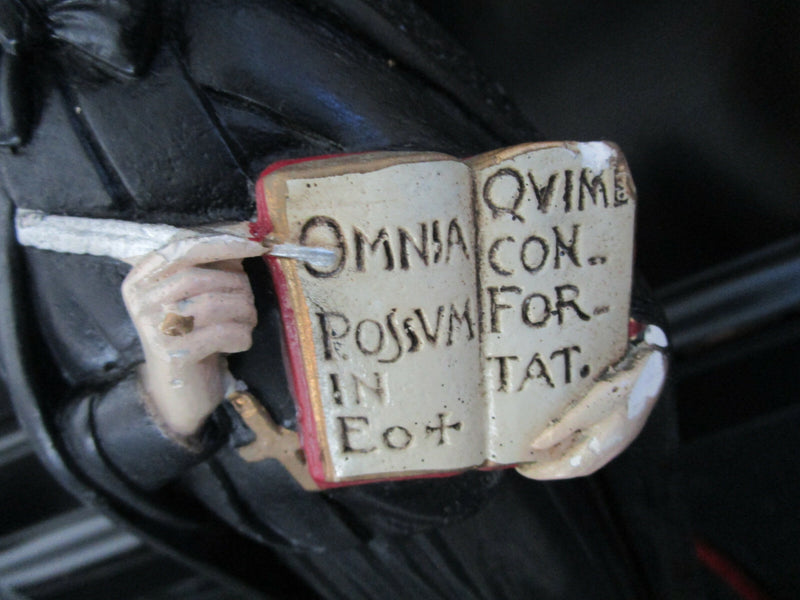 OMNIA
POSSVM
IN
EO+
QVIME
CON-
FOR-
TAT.